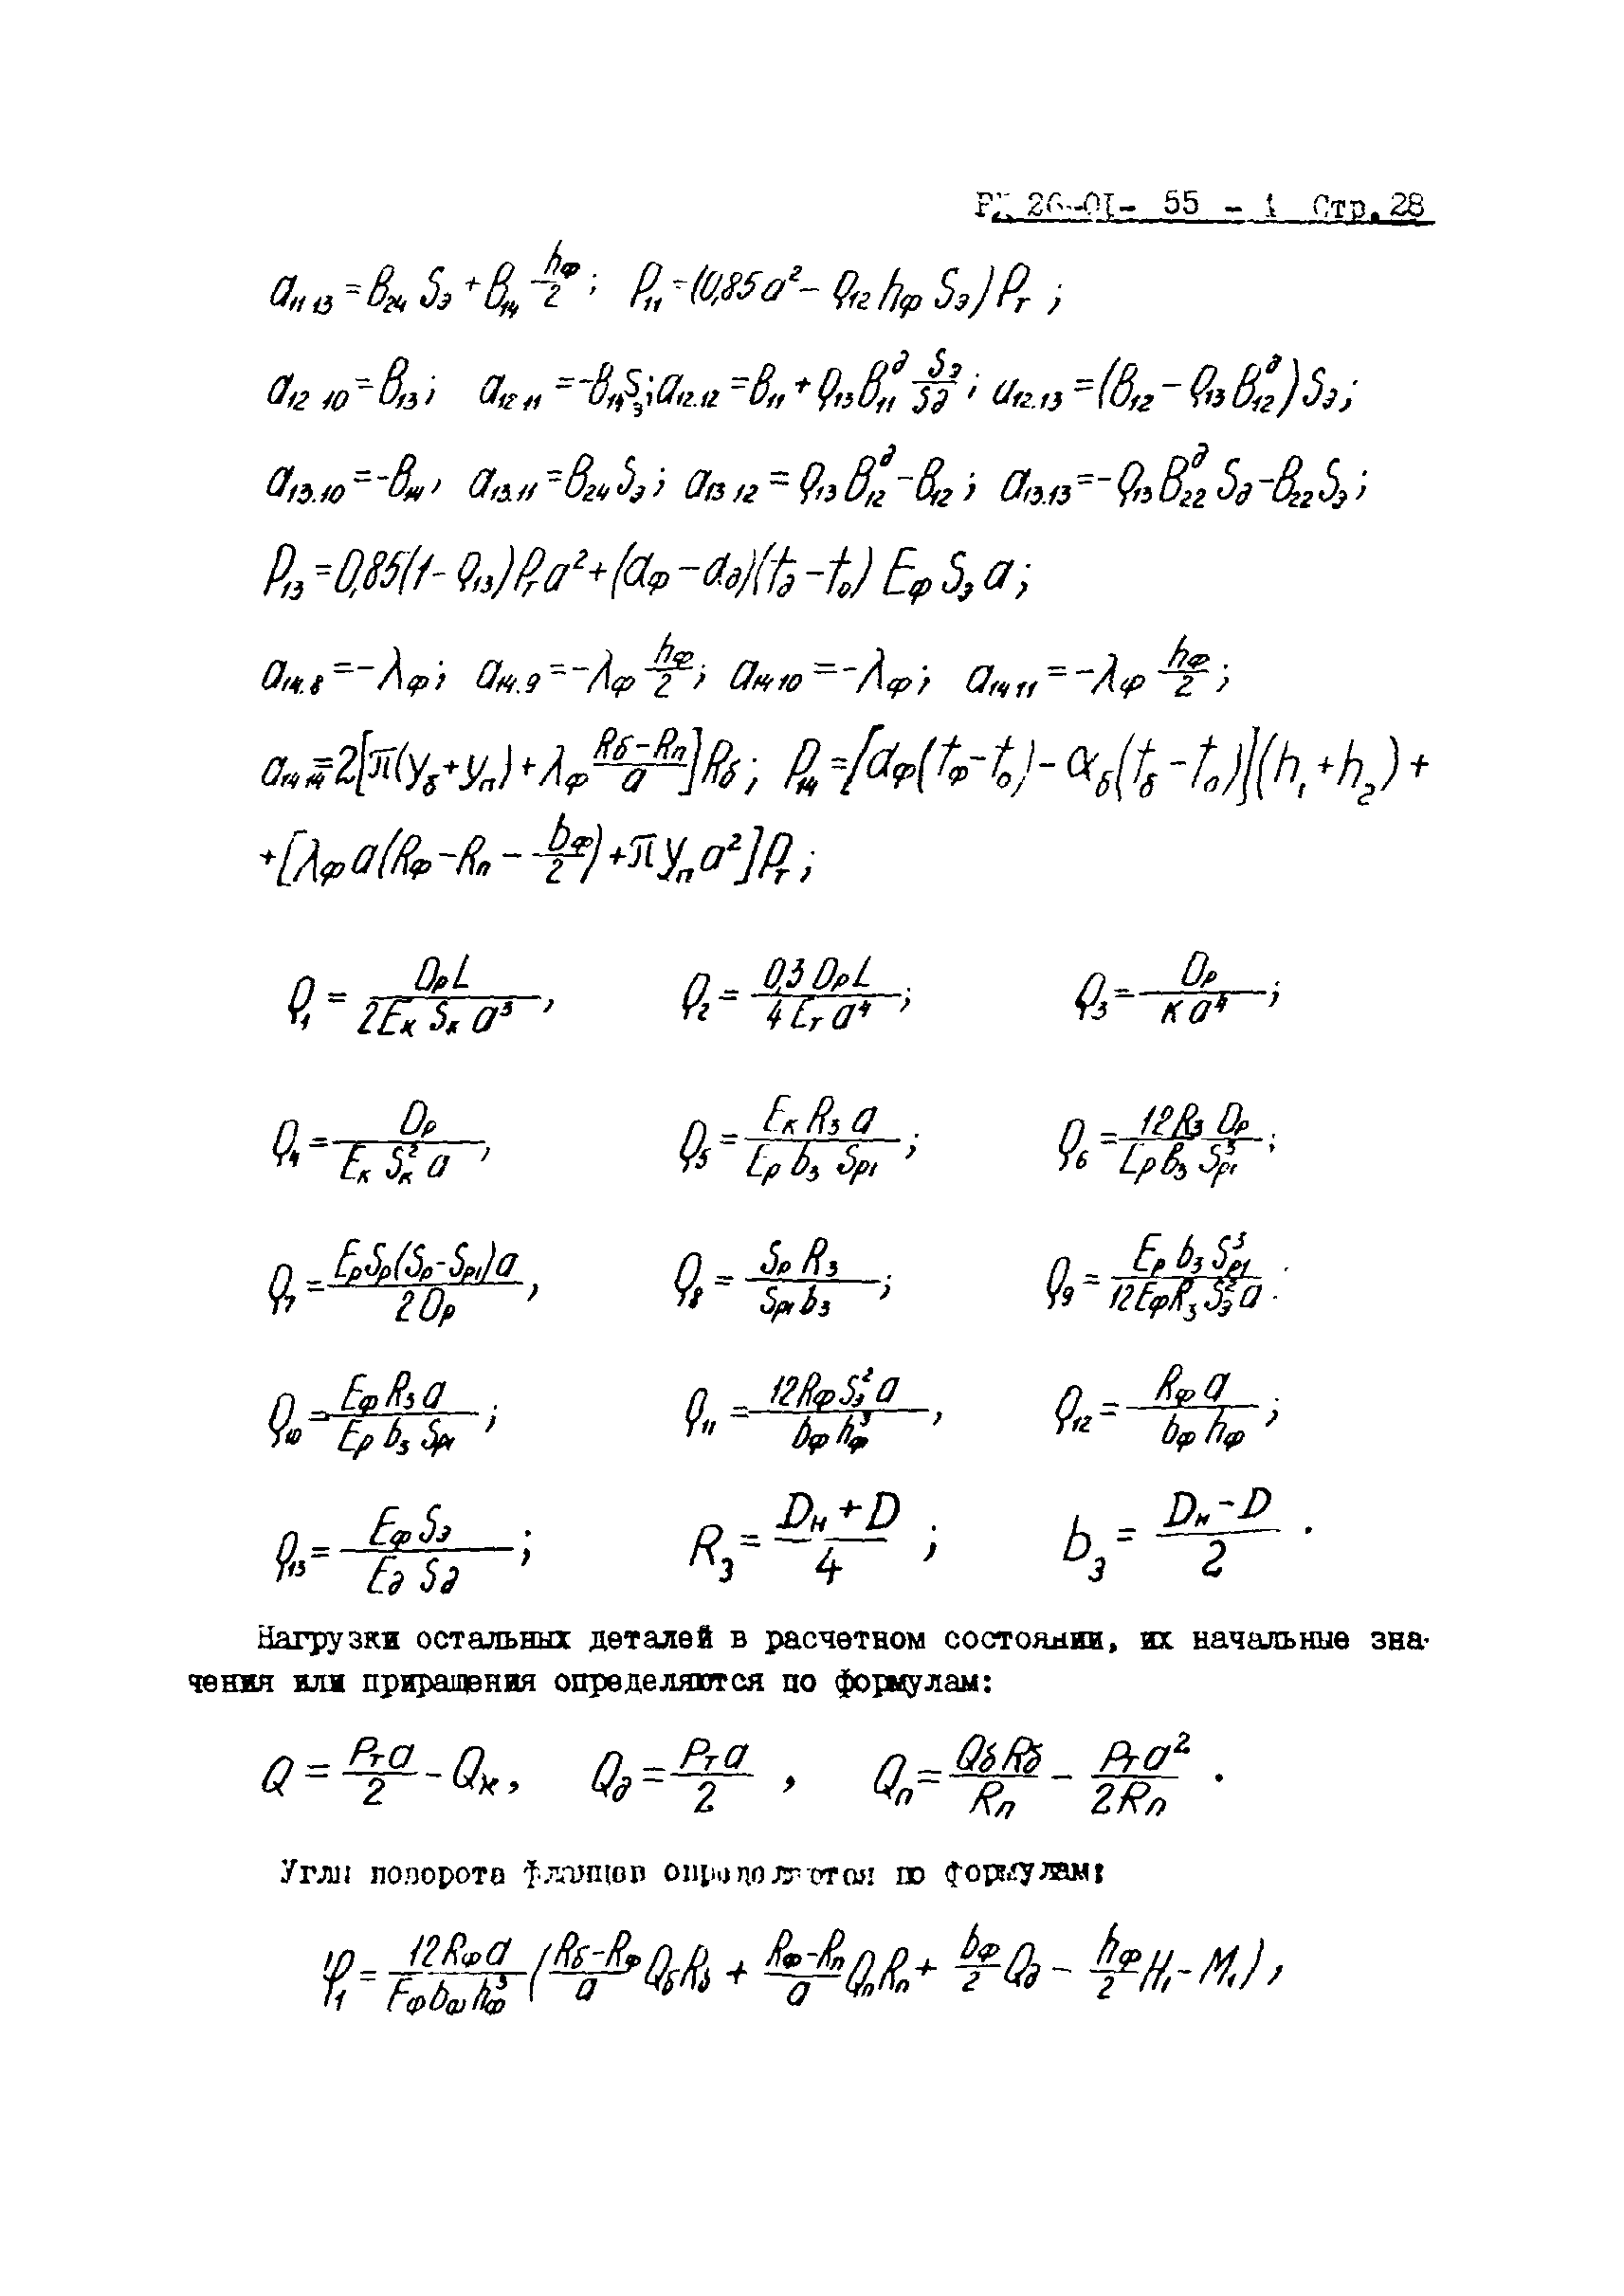 РД 26-01- 55 - 1 Стр.28
a₁₁ ₁₃ = B₂₄ Sэ + B₁₄ hф/2 ; P₁₁ = (0,85 a² - Q₁₂ hф Sэ) Pт ;
a₁₂ ₁₀ = B₁₃ ; a₁₂ ₁₁ = -B₁₄Sэ ; a₁₂.₁₂ = B₁₁ + Q₁₃ B₁₁ᵈ Sэ/Sд ; a₁₂.₁₃ = (B₁₂ - Q₁₃ B₁₂ᵈ) Sэ ;
a₁₃.₁₀ = -B₁₄ , a₁₃.₁₁ = B₂₄ Sэ ; a₁₃ ₁₂ = Q₁₃ B₁₂ᵈ - B₁₂ ; a₁₃.₁₃ = -Q₁₃ B₂₂ᵈ Sд - B₂₂ Sэ ;
P₁₃ = 0,85(1 - Q₁₃) Pт a² + (αф - αд)(tд - t₀) Eф Sэ a ;
a₁₄.₈ = -λф ; a₁₄.₉ = -λф hф/2 ; a₁₄ ₁₀ = -λф ; a₁₄ ₁₁ = -λф hф/2 ;
a₁₄ ₁₄ = 2[π(yб + yп) + λф (Rб - Rп)/a] Rб ; P₁₄ = [αф(tф - t₀) - αб(tб - t₀)](h₁ + h₂) +
+ [λф a(Rф - Rп - bф/2) + π yп a²] Pт ;
Q₁ = DрL / 2Eк Sк a³ , Q₂ = 0,3 DрL / 4 Eт a⁴ ; Q₃ = Dр / К a⁴ ;
Q₄ = Dр / Eк Sк² a , Q₅ = Eк R₃ a / Eр b₃ Sр₁ ; Q₆ = 12R₃ Dр / Eр b₃ Sр₁³ ;
Q₇ = EрSр(Sр - Sр₁)a / 2 Dр , Q₈ = Sр R₃ / Sр₁ b₃ ; Q₉ = Eр b₃ Sр₁³ / 12EфR₃ Sэ² a .
Q₁₀ = Eф R₃ a / Eр b₃ Sр₁ ; Q₁₁ = 12Rф Sэ² a / bф hф³ , Q₁₂ = Rф a / bф hф ;
Q₁₃ = Eф Sэ / Eд Sд ; R₃ = (Dн + D) / 4 ; b₃ = (Dн - D) / 2 .
Нагрузки остальных деталей в расчетном состоянии, их начальные зна-
чения или приращения определяются по формулам:
Q = Pт a / 2 - Qк , Qд = Pт a / 2 , Qп = Qб Rб / Rп - Pт a² / 2Rп .
Углы поворота фланцев определяются по формулам:
φ₁ = 12 Rф a / Eф bф hф³ ( (Rб - Rф)/a Qб Rб + (Rф - Rп)/a Qп Rп + bф/2 Qд - hф/2 H₁ - M₁ ) ,